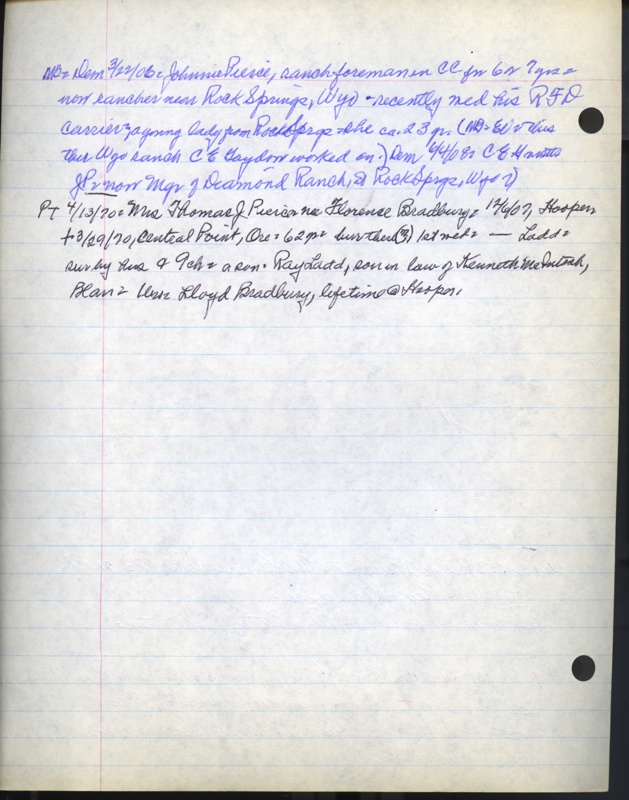 NB= Dem 3/22/06= Johnnie Pierce, ranch foreman in CC for 6 or 7 yrs=
now rancher near Rock Springs, Wyo - recently wed his RFD
carrier= a young lady from Rock Sprgs she ca. 23 yr. (NB= this
the Wyo ranch C E Gaydon worked on.) Dem C E
JP now Mgr of Diamond Ranch, at Rock Sprgs, Wyo ?)
PT 4/13/70= Mrs Thomas J Pierce nee Florence Bradbury= 12/6/07, Hooper
+ 3/29/70, Central Point, Ore= 62 yr= bur there (3) 1st wed= — Ladd=
surv by hus & 9 ch= a son= Ray Ladd, son in law of Kenneth McIntosh,
Blan= Lloyd Bradbury, lifetime @ Hooper.